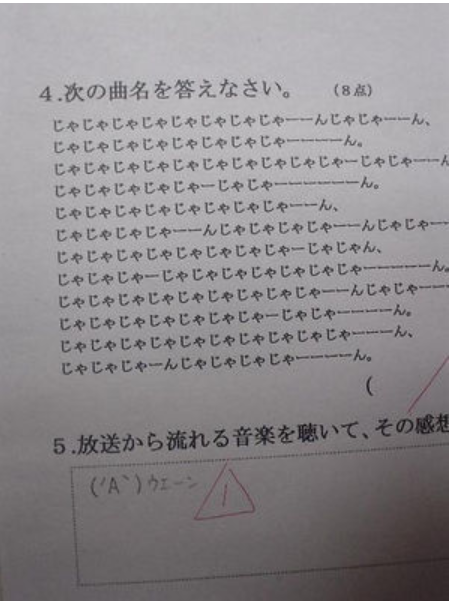 4.次の曲名を答えなさい。 (8点)
じゃじゃじゃじゃじゃじゃじゃじゃーーんじゃじゃーーん、
じゃじゃじゃじゃじゃじゃじゃじゃーーーーん。
じゃじゃじゃじゃじゃじゃじゃじゃじゃじゃーじゃじゃーーん
じゃじゃじゃじゃじゃーじゃじゃーーーーーーん。
じゃじゃじゃじゃじゃじゃじゃじゃーーん、
じゃじゃじゃじゃーーんじゃじゃじゃじゃーーんじゃじゃーー
じゃじゃじゃじゃじゃじゃじゃじゃーじゃじゃん、
じゃじゃじゃーじゃじゃじゃじゃじゃじゃじゃーーーーーん。
じゃじゃじゃじゃじゃじゃじゃじゃじゃーーんじゃじゃーーー
じゃじゃじゃじゃじゃじゃじゃーじゃじゃーーーーん。
じゃじゃじゃじゃじゃじゃじゃじゃじゃじゃーーーん、
じゃじゃじゃーんじゃじゃじゃじゃーーーーん。
(
5.放送から流れる音楽を聴いて、その感想
('A`)ウエーン
1